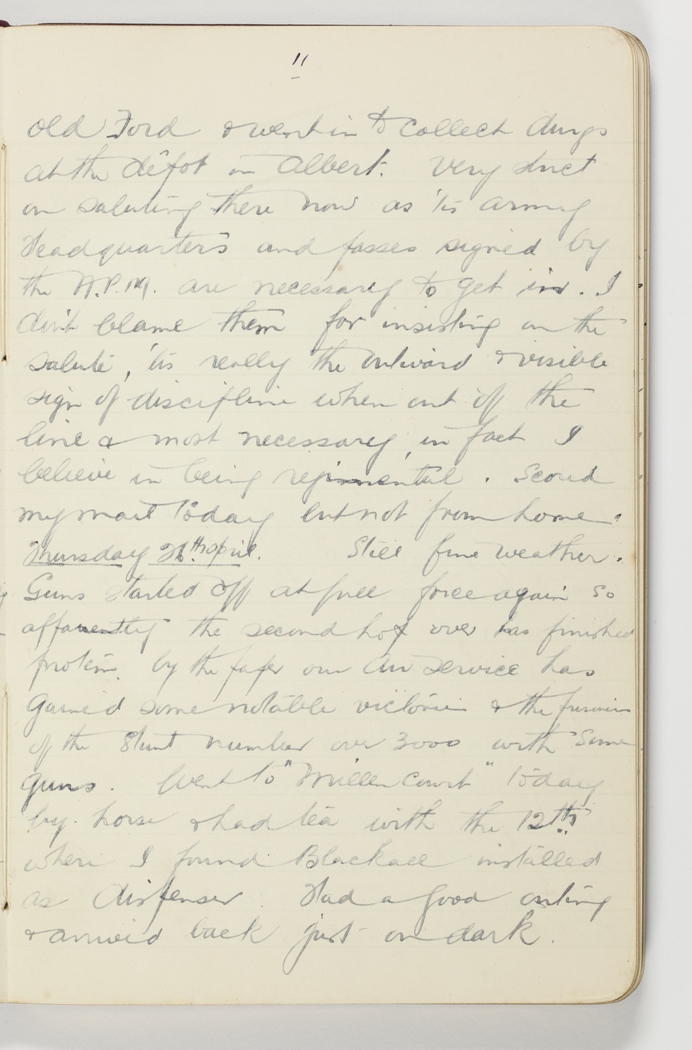 11
old Ford & went in to collect drugs
at the dêpot in Albert. Very strict
on saluting there now as 'tis army
Headquarters and passes signed by
the A.P.M. are necessary to get in. I
don't blame them for insisting on the
salute, 'tis really the outward & visible
sign of discipline when out of the
line & most necessary, in fact I
believe in being regimental. Scored
my mail today but not from home.
Thursday 26th April. Still fine weather.
Guns started off at full force again so
apparently the second hop over has finished
protem. by the paper our Air Service has
gained some notable victories & the prisoners
of the Stunt number over 3000 with some
guns. Went to "Millencourt" today
by horse & had tea with the 12th
where I found Blackall installed
as dispenser. Had a good outing
& arrived back just on dark.